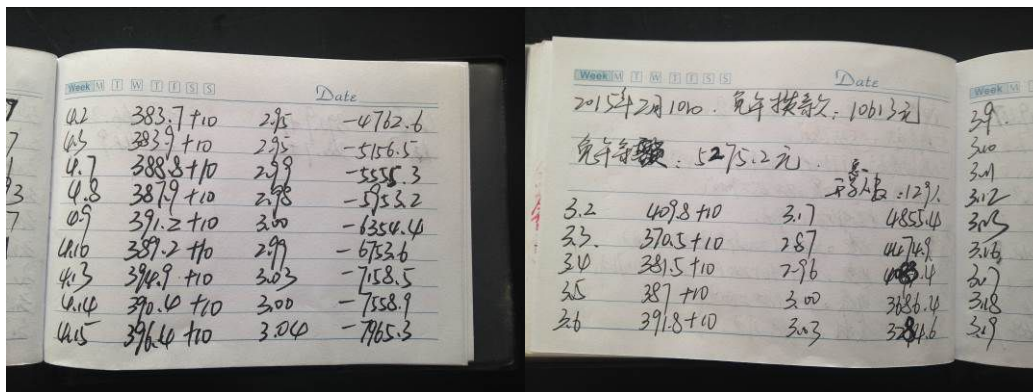 Week M T W T F S S
Date
4.2 383.7+10 2.95 -4762.6
4.3 383.9+10 2.95 -5156.5
4.7 388.8+10 2.99 -5555.3
4.8 387.9+10 2.98 -5953.2
4.9 391.2+10 3.00 -6354.4
4.10 389.2+10 2.99 -6753.6
4.13 394.9+10 3.03 -7158.5
4.14 390.4+10 3.00 -7558.9
4.15 396.4+10 3.04 -7965.3
Week M T W T F S S
Date
2015年2月 10613元
5275.2元
129
3.2 409.8+10 3.17 4855.4
3.3 370.5+10 2.87 4474.9
3.4 381.5+10 2.96
3.5 387+10 3.00 3686.4
3.6 391.8+10 3.03 3284.6
Week M
3.9
3.10
3.11
3.12
3.13
3.16
3.17
3.18
3.19